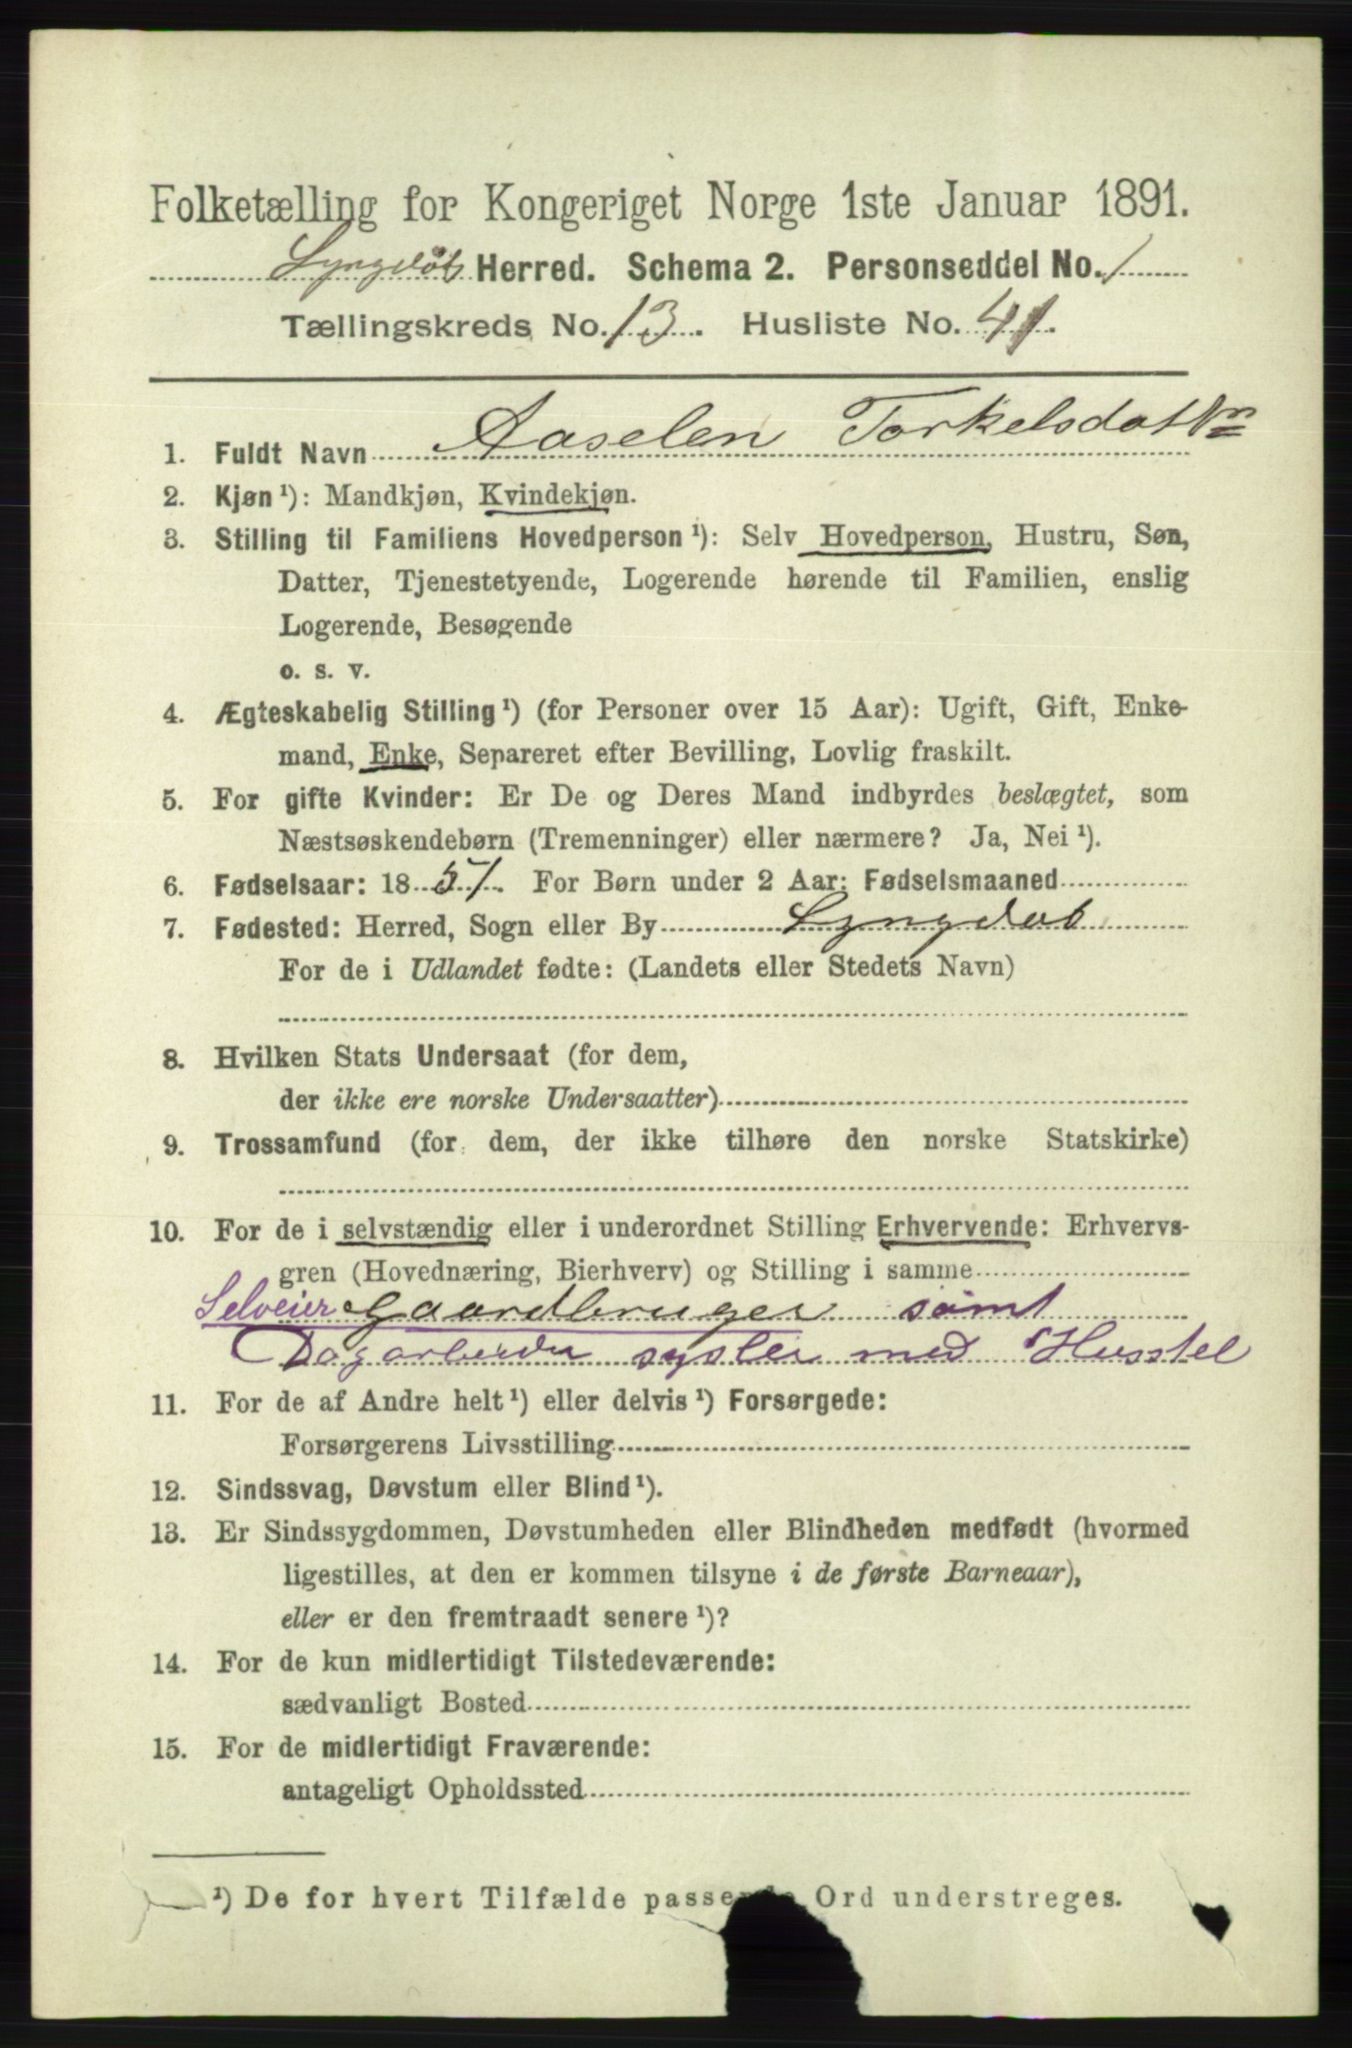 Folketælling for Kongeriget Norge 1ste Januar 1891.
Lyngdøl Herred. Schema 2. Personseddel No. 1
Tællingskreds No. 13. Husliste No. 41.
1. Fuldt Navn Aaselen Torkelsdattr
2. Kjøn ¹): Mandkjøn, Kvindekjøn.
3. Stilling til Familiens Hovedperson ¹): Selv Hovedperson, Hustru, Søn,
Datter, Tjenestetyende, Logerende hørende til Familien, enslig
Logerende, Besøgende
o. s. v.
4. Ægteskabelig Stilling ¹) (for Personer over 15 Aar): Ugift, Gift, Enke-
mand, Enke, Separeret efter Bevilling, Lovlig fraskilt.
5. For gifte Kvinder: Er De og Deres Mand indbyrdes beslægtet, som
Næstsøskendebørn (Tremenninger) eller nærmere? Ja, Nei ¹).
6. Fødselsaar: 1851. For Børn under 2 Aar: Fødselsmaaned
7. Fødested: Herred, Sogn eller By Lyngdal
For de i Udlandet fødte: (Landets eller Stedets Navn)
8. Hvilken Stats Undersaat (for dem,
der ikke ere norske Undersaatter)
9. Trossamfund (for dem, der ikke tilhøre den norske Statskirke)
10. For de i selvstændig eller i underordnet Stilling Erhvervende: Erhvervs-
gren (Hovednæring, Bierhverv) og Stilling i samme
Selveier Gaardbruger samt
Dagarbeider sysler med Husstel
11. For de af Andre helt ¹) eller delvis ¹) Forsørgede:
Forsørgerens Livsstilling
12. Sindssvag, Døvstum eller Blind ¹).
13. Er Sindssygdommen, Døvstumheden eller Blindheden medfødt (hvormed
ligestilles, at den er kommen tilsyne i de første Barneaar),
eller er den fremtraadt senere ¹)?
14. For de kun midlertidigt Tilstedeværende:
sædvanligt Bosted
15. For de midlertidigt Fraværende:
antageligt Opholdssted
¹) De for hvert Tilfælde passende Ord understreges.